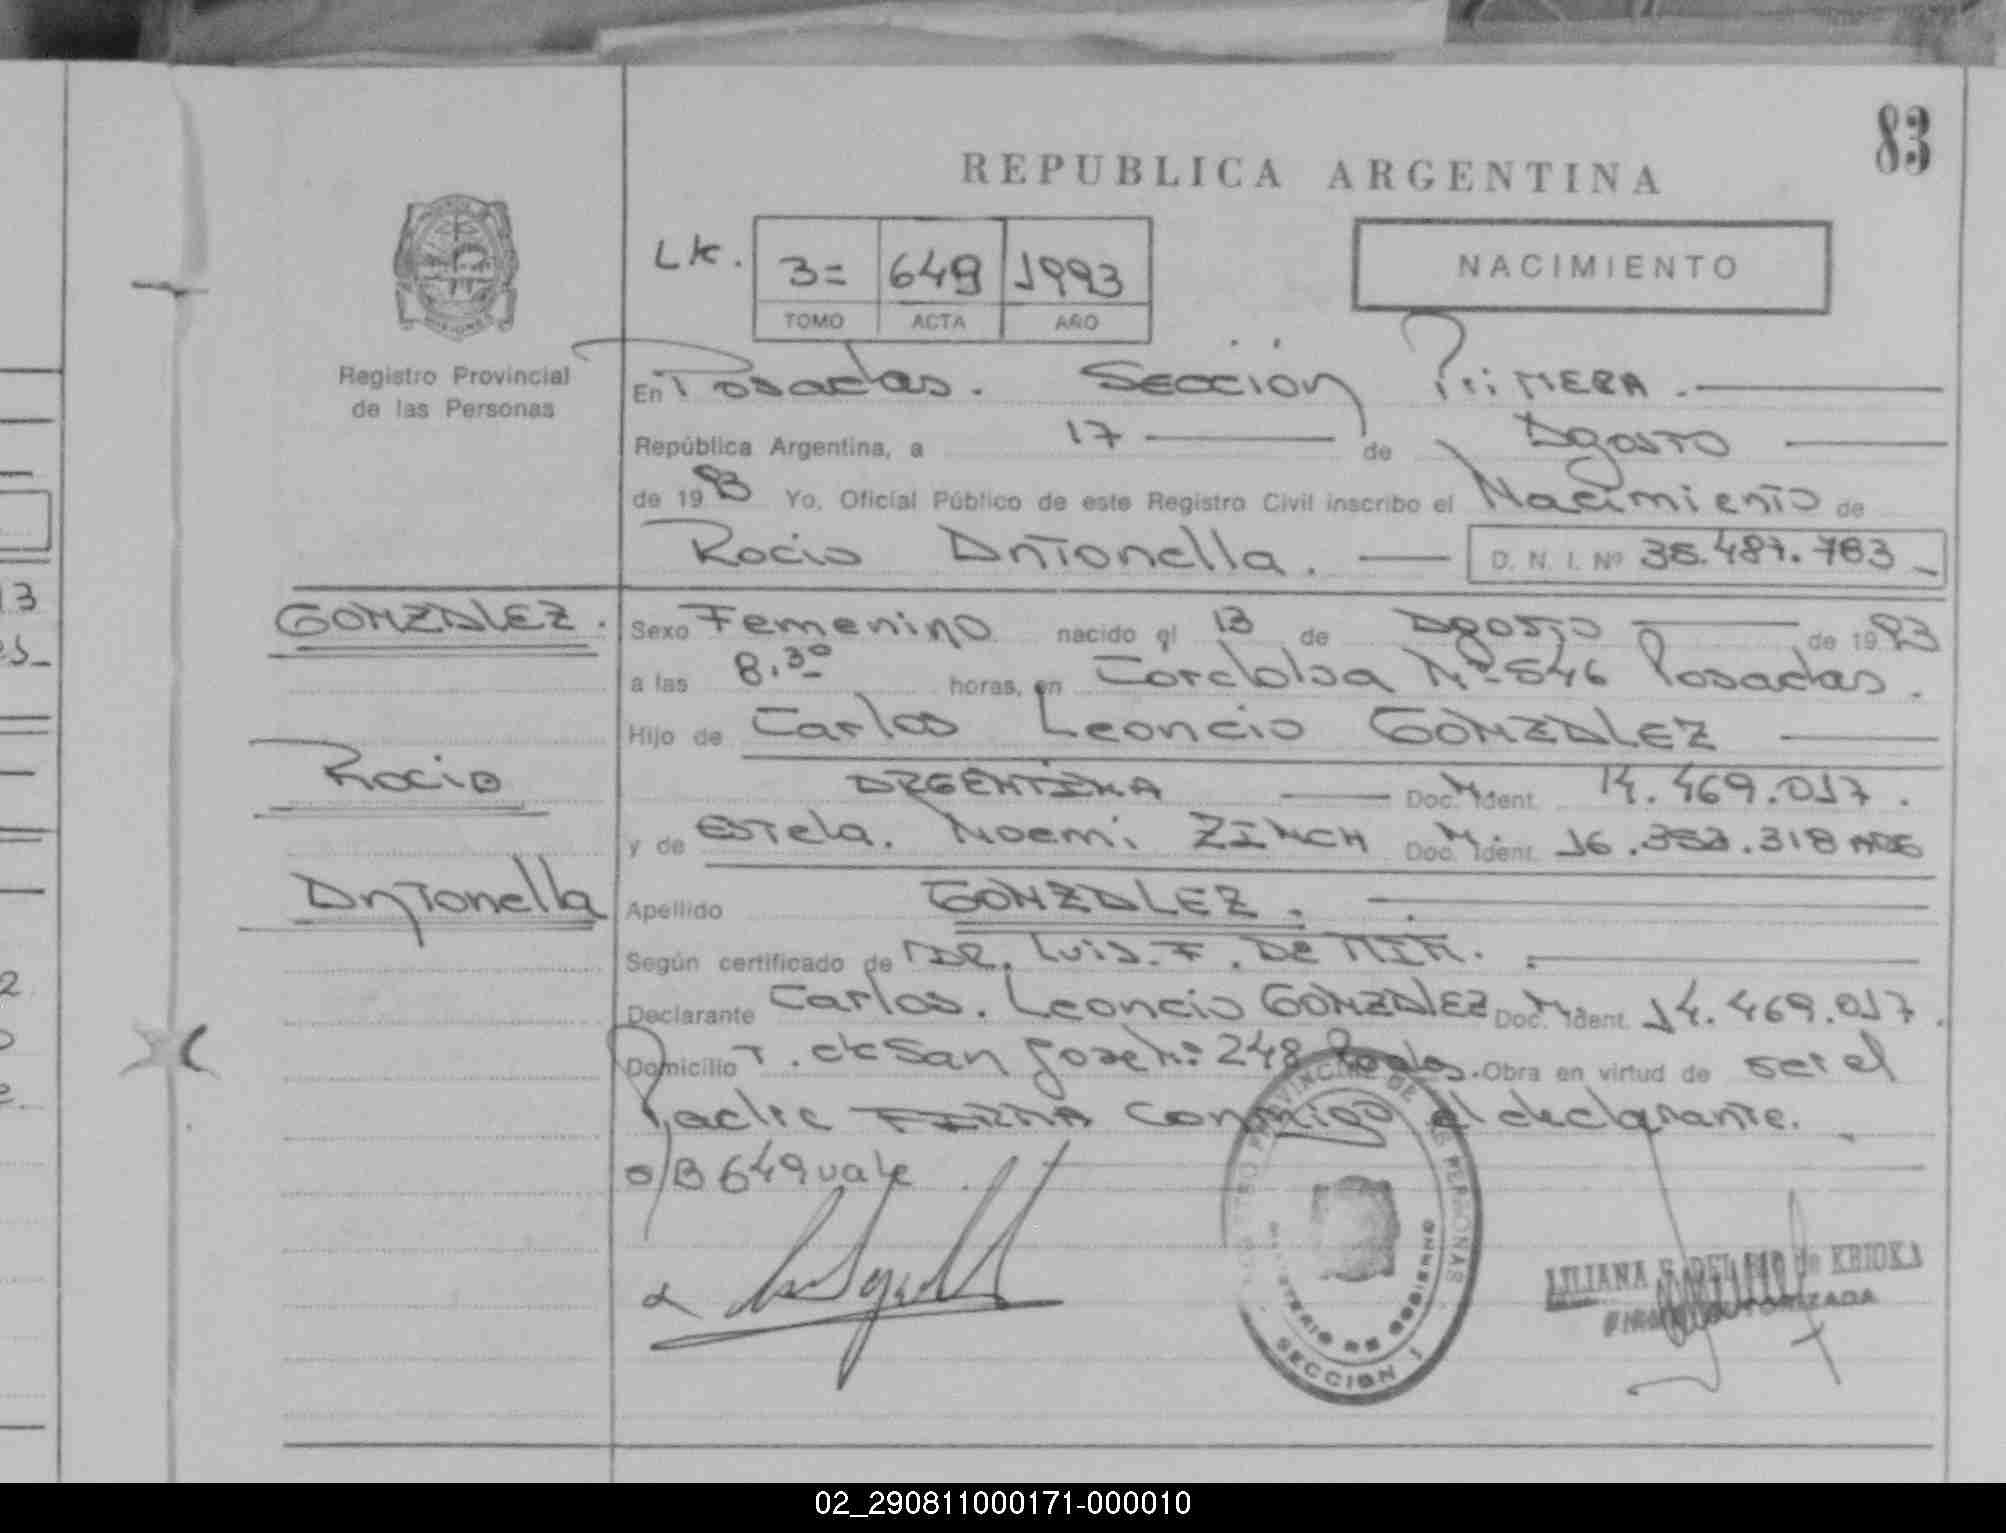 83
REPUBLICA ARGENTINA
LK. 3= 649 1993
TOMO ACTA AÑO
NACIMIENTO
Registro Provincial
de las Personas
En Posadas. Sección Primera.
República Argentina, a 17 de Agosto
de 1993 Yo, Oficial Público de este Registro Civil inscribo el Nacimiento de
Rocio Antonella. D. N. I. Nº 38.487.783
GONZALEZ.
Rocio
Antonella
Sexo Femenino nacido el 13 de Agosto de 1993
a las 8.30 horas, en Cordoba Nº 546 Posadas.
Hijo de Carlos Leoncio GONZALEZ
ARGENTINA Doc. Ident. 14.469.017.
y de Estela. Noemi ZINCH Doc. Ident. 16.352.318
Apellido GONZALEZ.
Según certificado de DR. Luis. F. De
Declarante Carlos. Leoncio GONZALEZ Doc. Ident. 14.469.017.
Domicilio T. de San Jose Nº 248 Obra en virtud de ser el
Padre FIRMA conmigo el declarante.
S/B 649 vale
REGISTRO PROVINCIAL DE LAS PERSONAS
MINISTERIO DE GOBIERNO
SECCION 1
LILIANA S. DEL de KRIOKA
FIRMA AUTORIZADA
02_290811000171-000010